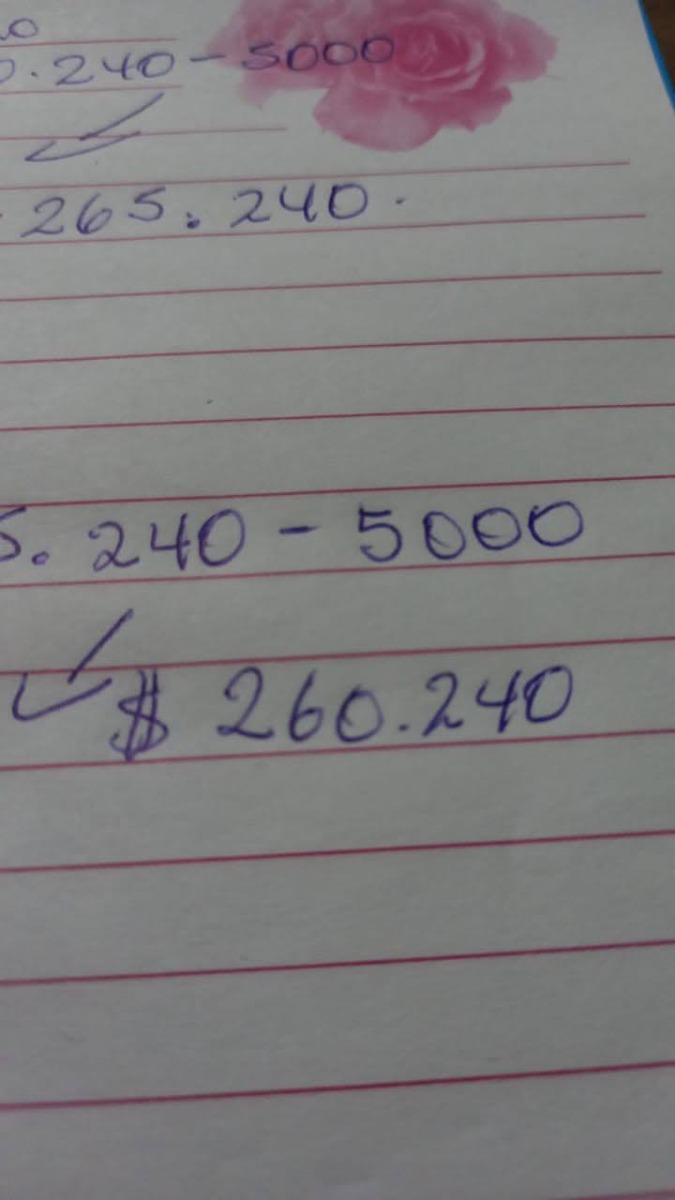 0.240 - 5000
265.240.
5.240 - 5000
$ 260.240